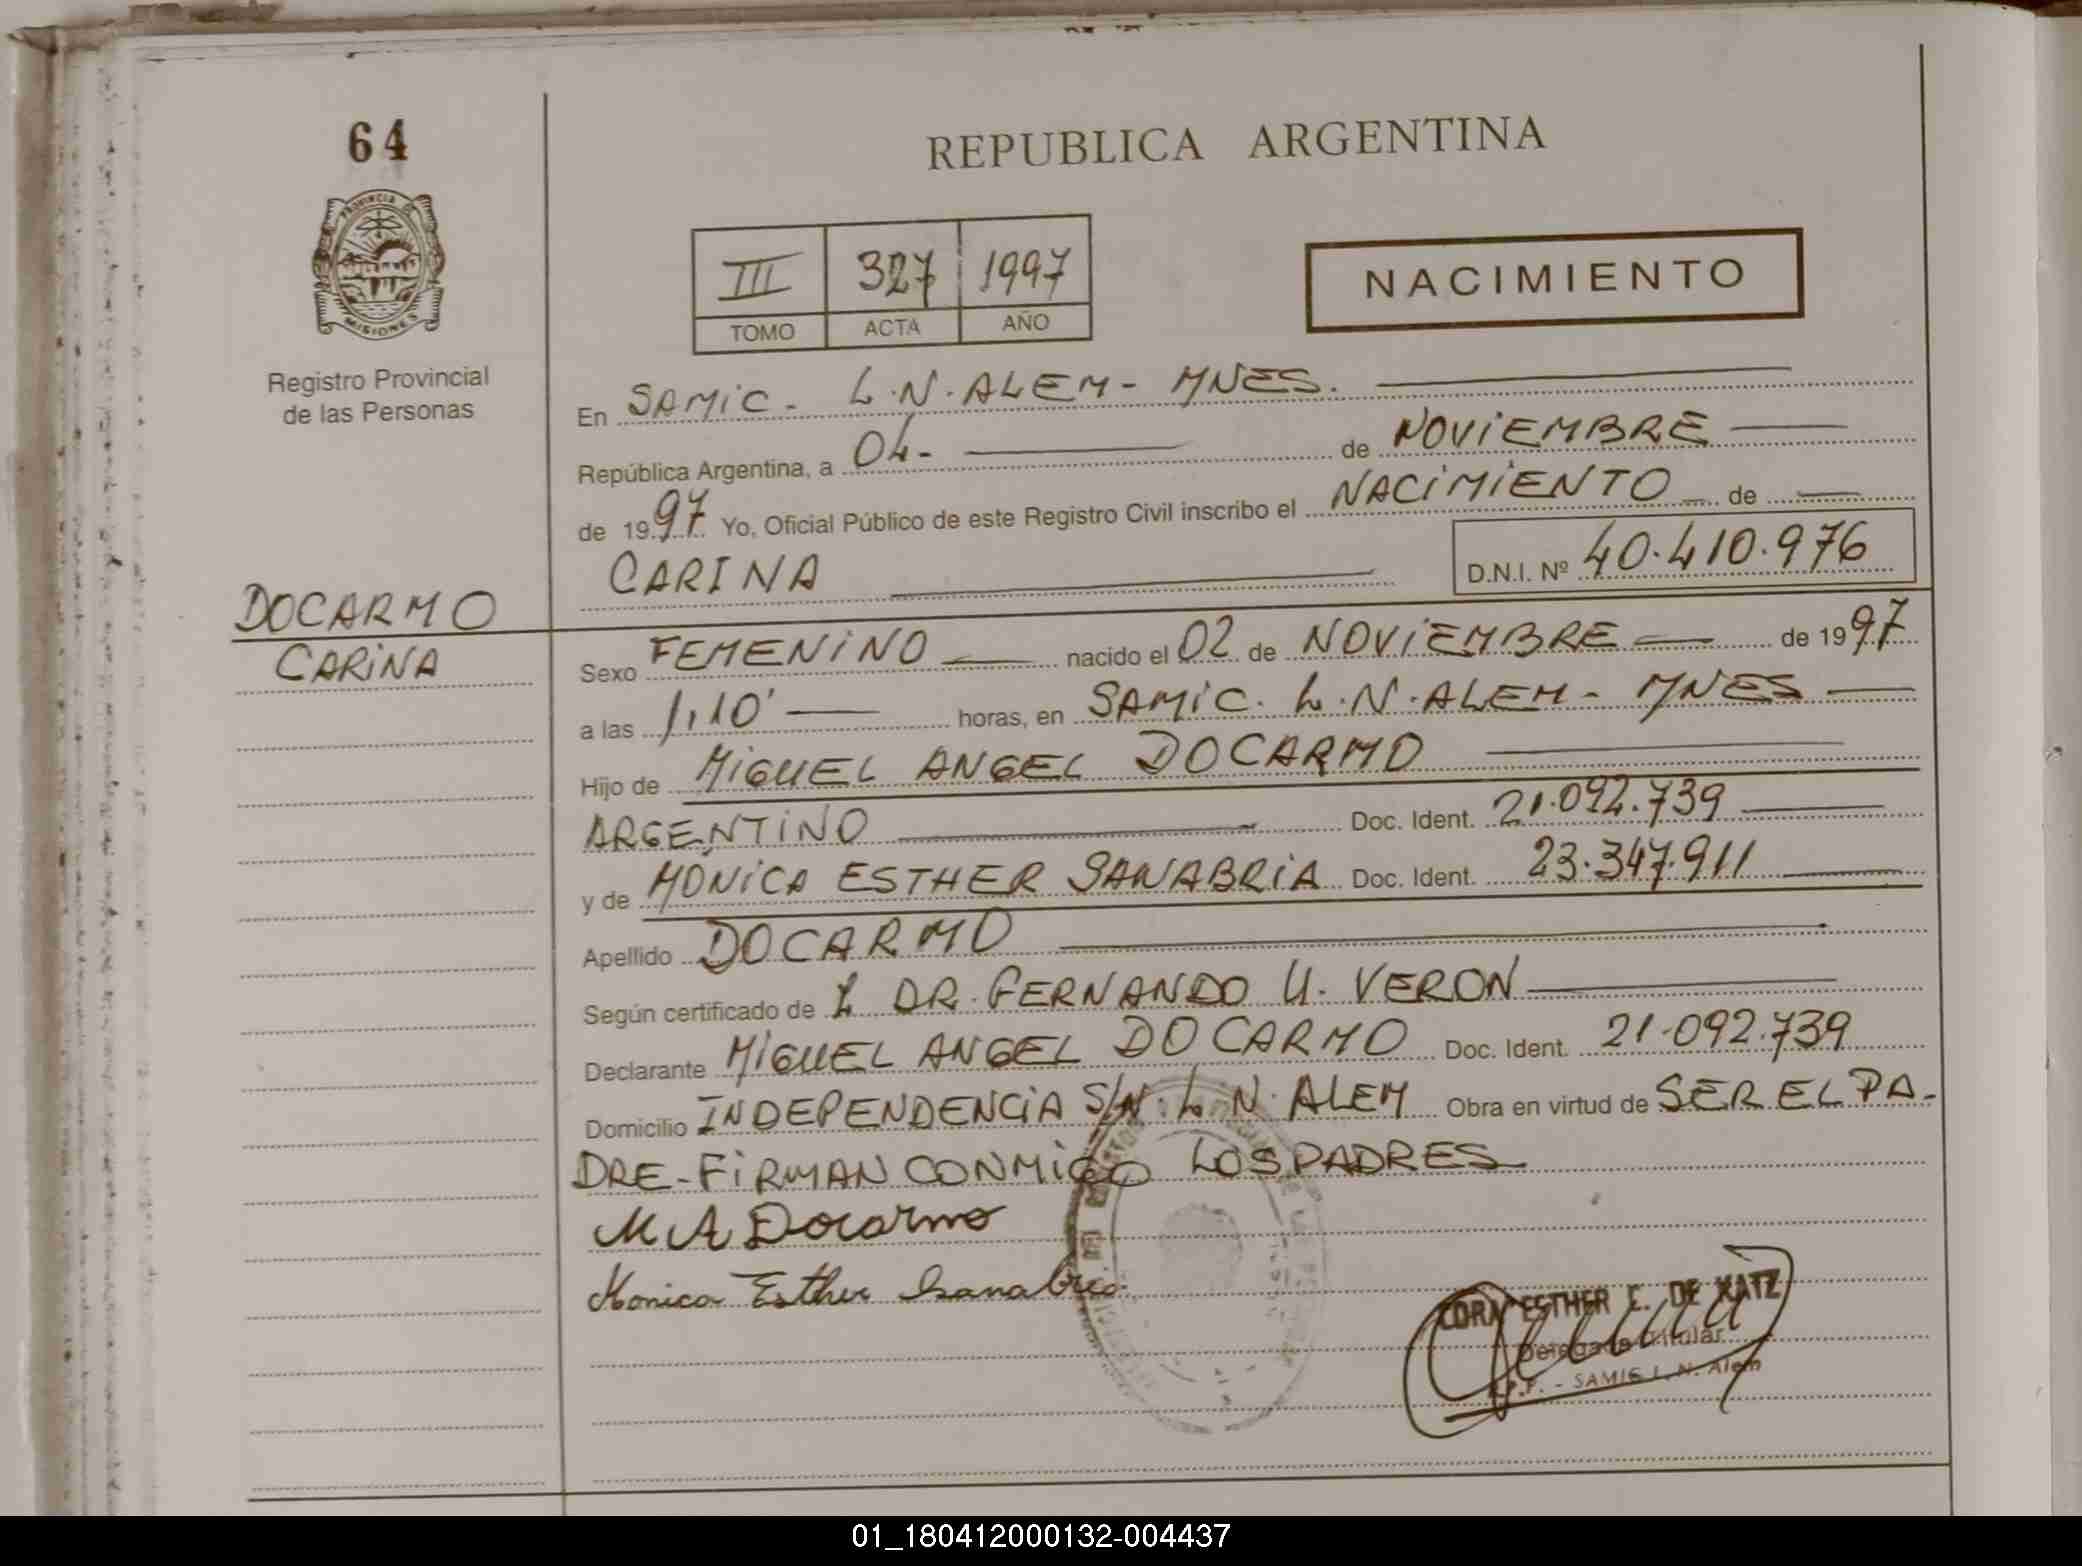 64
REPUBLICA ARGENTINA
PROVINCIA DE
MISIONES
Registro Provincial
de las Personas
III 327 1997
TOMO ACTA AÑO
NACIMIENTO
En SAMIC - L.N. ALEM - MNES.
República Argentina, a 04 - de NOVIEMBRE
de 1997 Yo, Oficial Público de este Registro Civil inscribo el NACIMIENTO de
CARINA D.N.I. Nº 40.410.976
DOCARMO
CARINA
Sexo FEMENINO nacido el 02 de NOVIEMBRE de 1997
a las 1,10' horas, en SAMIC. L.N. ALEM - MNES
Hijo de MIGUEL ANGEL DOCARMO
ARGENTINO Doc. Ident. 21.092.739
y de MONICA ESTHER SANABRIA Doc. Ident. 23.347.911
Apellido DOCARMO
Según certificado de L DR. FERNANDO U. VERON
Declarante MIGUEL ANGEL DOCARMO Doc. Ident. 21.092.739
Domicilio INDEPENDENCIA S/N. L.N. ALEM Obra en virtud de SER EL PA-
DRE - FIRMAN CONMIGO LOS PADRES
M A Docarmo
Monica Esther Sanabria
ESTHER C. DE KATZ
Delegada Titular
SAMIC L. N. Alem
01_180412000132-004437